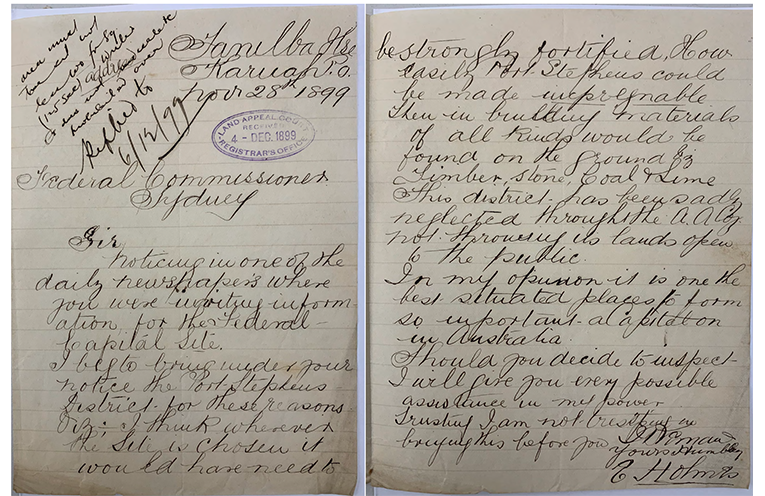 area must
not
less
(
Replied to
6/12/99
Tanilba Hse
Karuah P.O.
Nov 28th 1899
LAND APPEAL COURT
RECEIVED
4 - DEC. 1899
REGISTRAR'S OFFICE
Federal Commissioner
Sydney
Sir
Noticing in one of the
daily newspapers where
you were inviting inform-
ation for the Federal
Capital Site.
I beg to bring under your
notice the Port Stephens
District for these reasons
Viz; I think wherever
the Site is chosen it
would have need to
be strongly fortified, How
easily Port Stephens could
be made inpregnable
Then in building materials
of all kinds would be
found on the ground viz
Timber, stone, Coal & Lime
This district has been sadly
neglected through the A. A. Coy
not throwing its lands open
to the public.
In my opinion it is one the
best situated places to form
so important a Capital on
in Australia.
Should you decide to inspect
I will give you every possible
assistance in my power
Trusting I am not trespassing in
bringing this before you I Remain
Yours Humbly
E Holmes